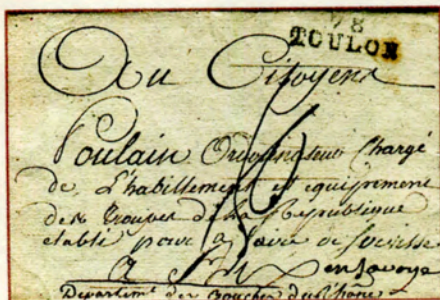 78
TOULON
Au Citoyen
Poulain Ordonnateur Chargé
de L'habillement et equipement
des troupes de la Republique
etabli pour a faire de
en Savoye
Departemt des Bouches du Rhône